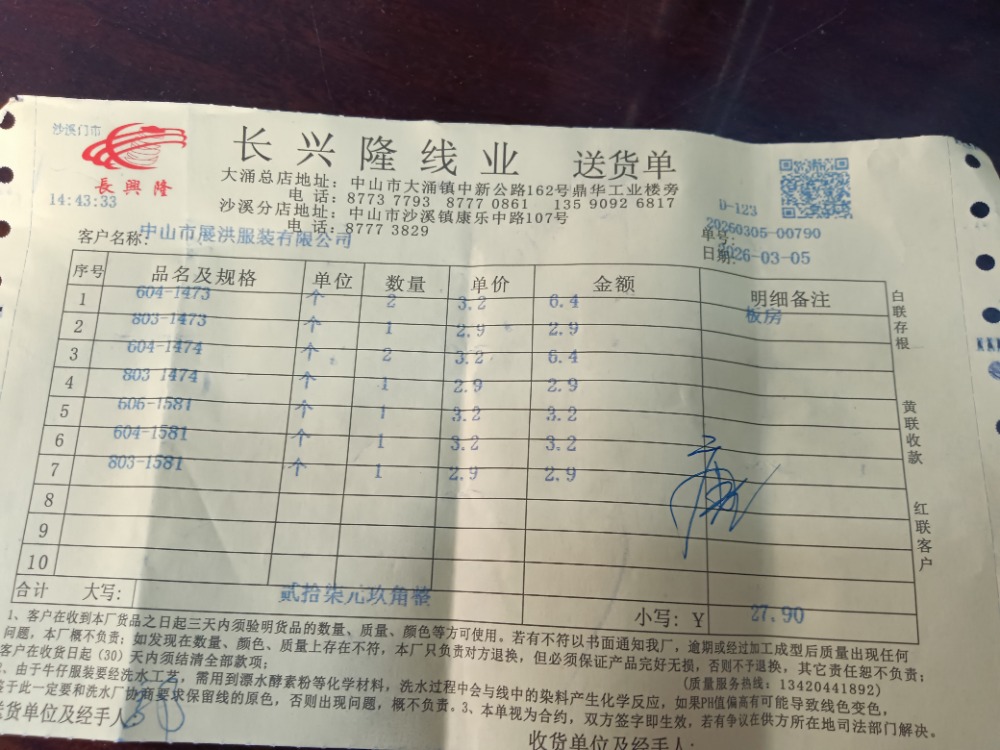 沙溪门市
長興隆
14:43:33
长兴隆线业 送货单
大涌总店地址：中山市大涌镇中新公路162号鼎华工业楼旁
电话：8773 7793 8777 0861 135 9092 6817
沙溪分店地址：中山市沙溪镇康乐中路107号
电话：8777 3829
D-123
单号：20260305-00790
日期：2026-03-05
客户名称：中山市展洪服装有限公司
序号 品名及规格 单位 数量 单价 金额 明细备注
1 604-1473 个 2 3.2 6.4 板房
2 803-1473 个 1 2.9 2.9
3 604-1474 个 2 3.2 6.4
4 803-1474 个 1 2.9 2.9
5 606-1581 个 1 3.2 3.2
6 604-1581 个 1 3.2 3.2
7 803-1581 个 1 2.9 2.9
8
9
10
合计 大写：贰拾柒元玖角整 小写：Y 27.90
白联存根
黄联收款
红联客户
1、客户在收到本厂货品之日起三天内须验明货品的数量、质量、颜色等方可使用。若有不符以书面通知我厂，逾期或经过加工成型后质量出现任何
问题，本厂概不负责；如发现在数量、颜色、质量上存在不符，本厂只负责对方退换，但必须保证产品完好无损，否则不予退换，其它责任恕不负责；
客户在收货日起（30）天内须结清全部款项；
（质量服务热线：13420441892）
、由于牛仔服装要经洗水工艺，需用到漂水酵素粉等化学材料，洗水过程中会与线中的染料产生化学反应，如果PH值偏高有可能导致线色变色，
鉴于此一定要和洗水厂协商要求保留线的原色，否则出现问题，概不负责。3、本单视为合约，双方签字即生效，若有争议在供方所在地司法部门解决。
送货单位及经手人：
收货单位及经手人：